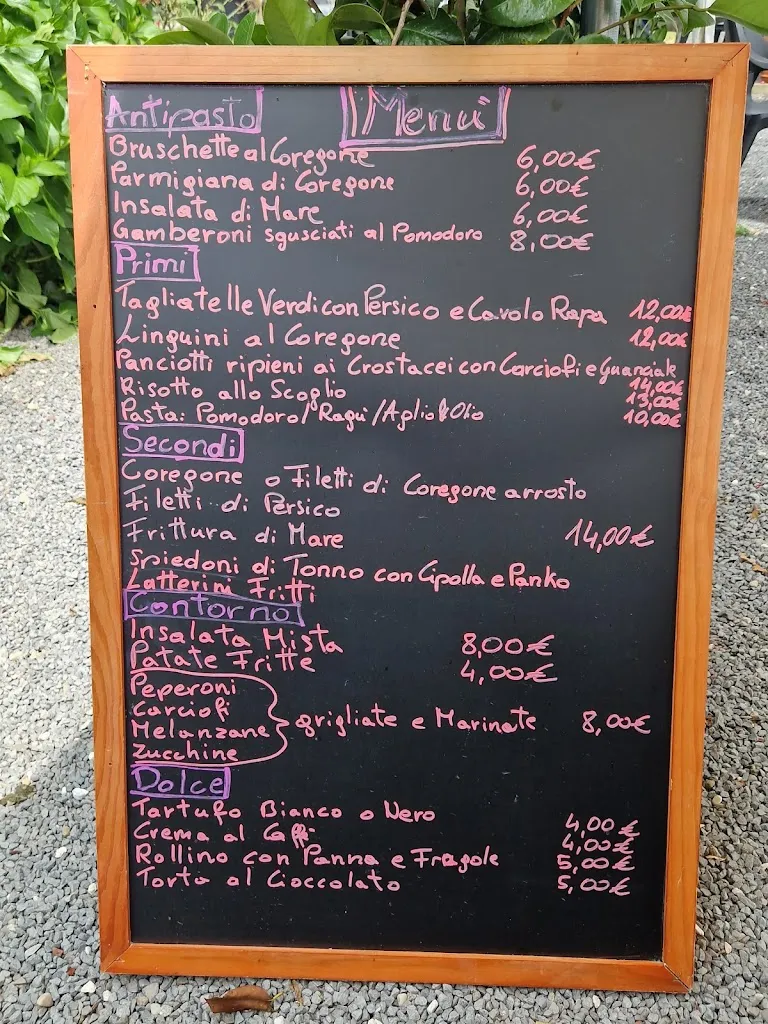 Menù
Antipasto
Bruschette al Coregone 6,00€
Parmigiana di Coregone 6,00€
Insalata di Mare 6,00€
Gamberoni sgusciati al Pomodoro 8,00€
Primi
Tagliatelle Verdi con Persico e Cavolo Rapa 12,00€
Linguini al Coregone 12,00€
Panciotti ripieni ai Crostacei con Carciofi e Guanciale 14,00€
Risotto allo Scoglio 13,00€
Pasta: Pomodoro/Ragù/Aglio&Olio 10,00€
Secondi
Coregone o Filetti di Coregone arrosto
Filetti di Persico
Frittura di Mare 14,00€
Spiedoni di Tonno con Cipolla e Panko
Latterini Fritti
Contorno
Insalata Mista 8,00€
Patate Fritte 4,00€
Peperoni
Carciofi
Melanzane grigliate e Marinate 8,00€
Zucchine
Dolce
Tartufo Bianco o Nero 4,00€
Crema al Caffè 4,00€
Rollino con Panna e Fragole 5,00€
Torta al Cioccolato 5,00€